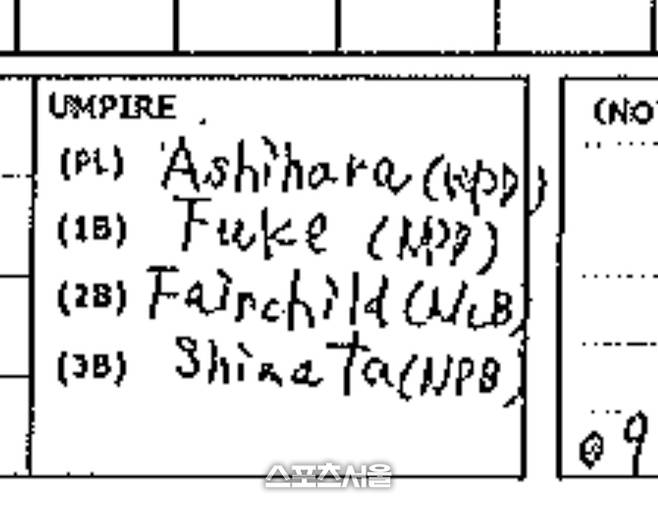 UMPIRE
(PL) Ashihara (NPB)
(1B) Fuke (NPB)
(2B) Fairchild (MLB)
(3B) (NPB)
(NO
9
스포츠서울